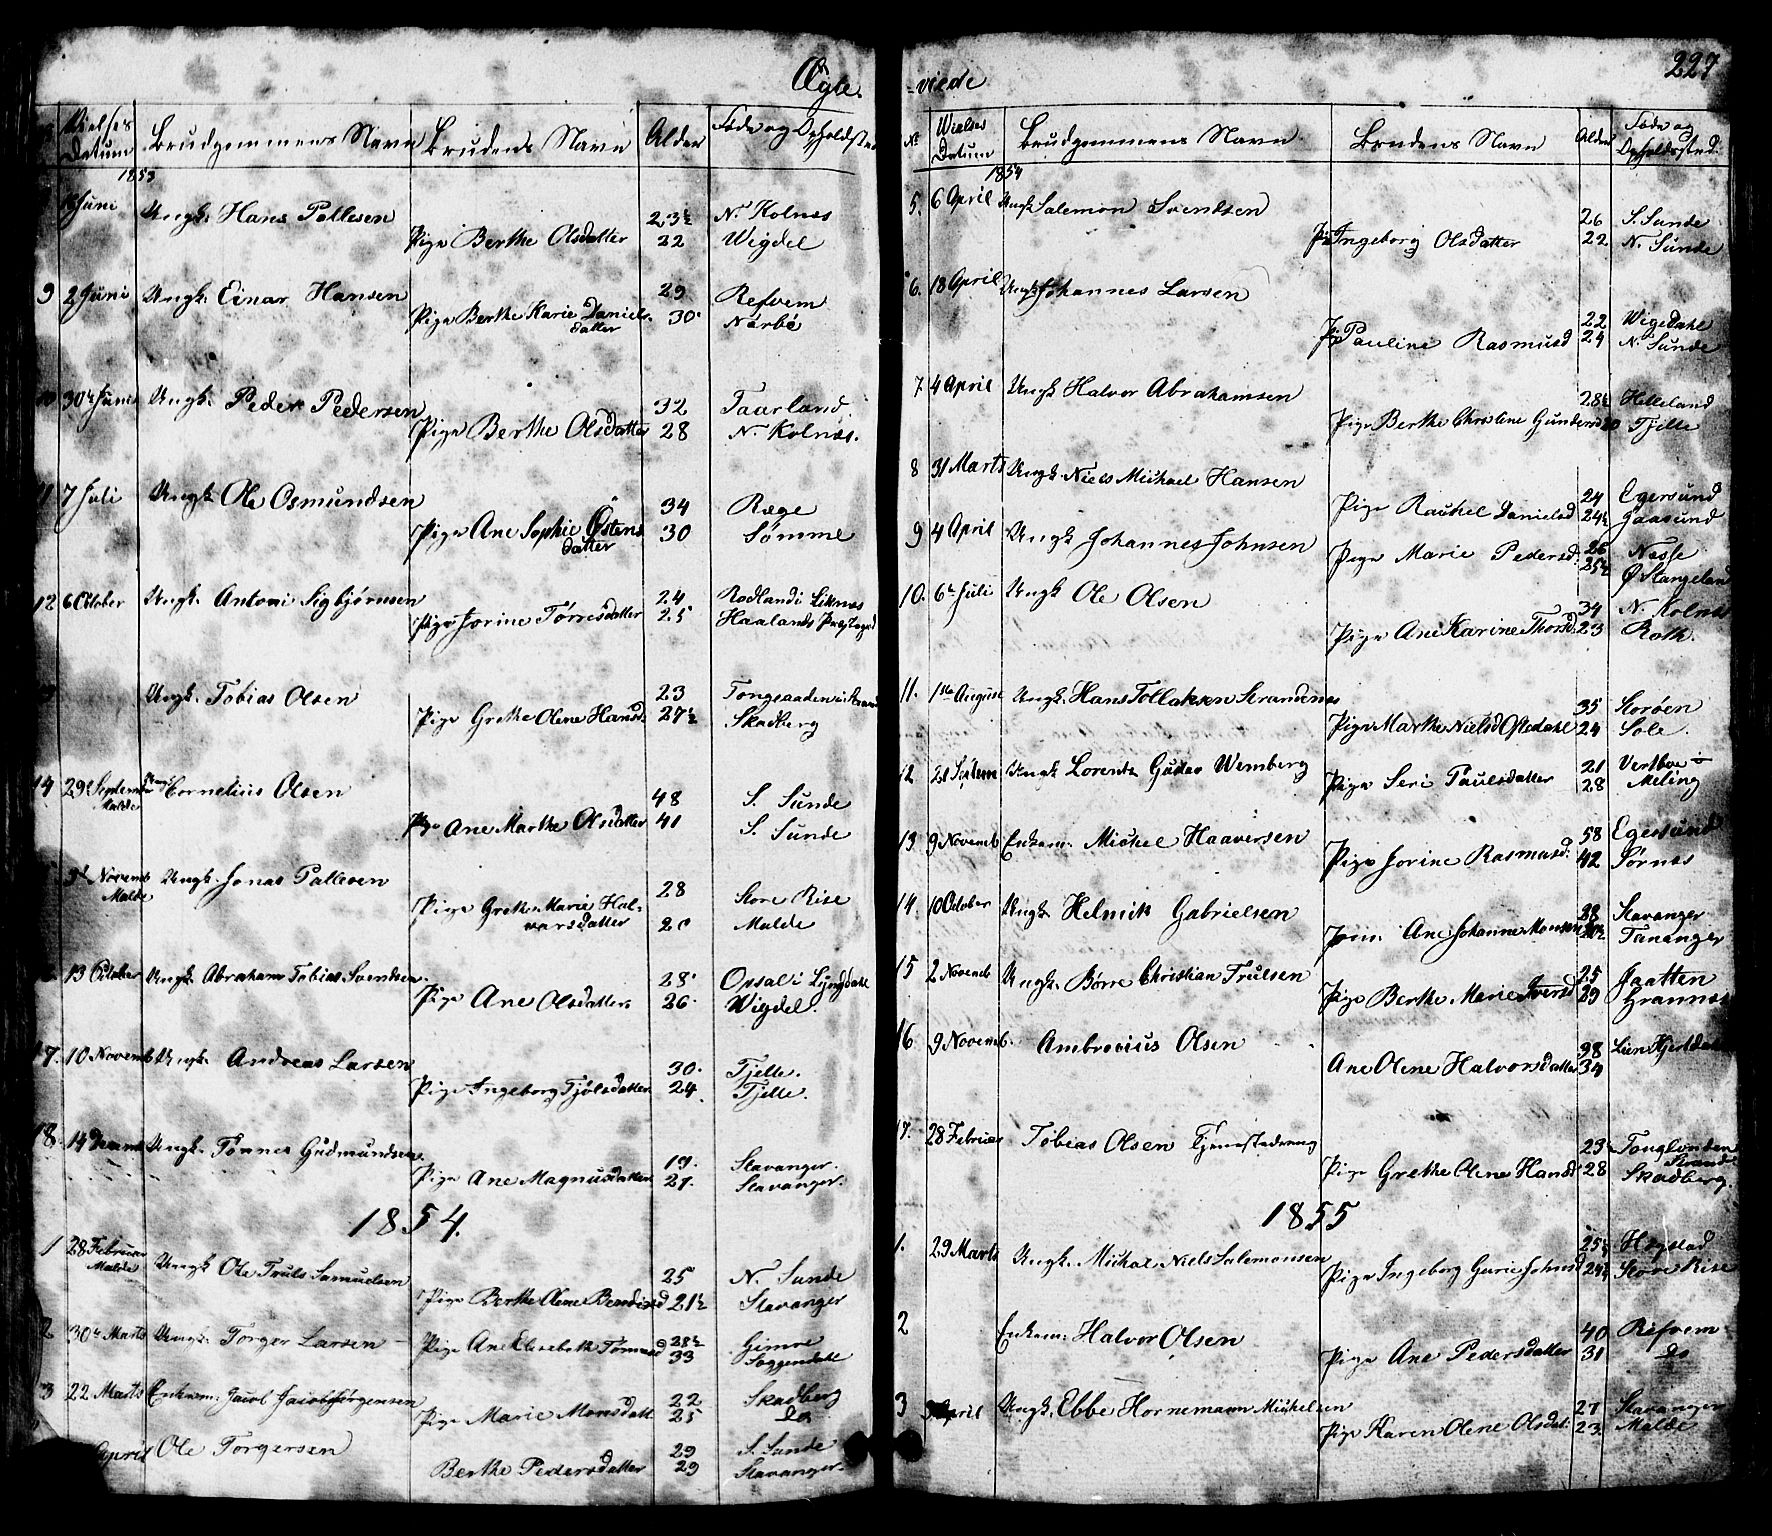 Ægte
Vielses Datum Brudgommens Navn Brudens Navn Alder Føde og Opholdsted
1853
Juni Ungk. Hans Pallesen 23½ N. Kolnæs
Pige Berthe Olsdatter 22 Wigdel
9 2 Juni Ungk. Einar Hansen 29 Refvem
Pige Berthe Karie Daniels- 30 Nærbø
datter
30te Juni Ungk. Peder Pedersen 32 Taarland
Pige Berthe Olsdatter 28 N. Kolnæs.
7 Juli Ungk Ole Osmundsen 34 Ræge
Pige Ane Sophie Østens 30 Sømme
datter
12 6 October Ungk. Antoni Sigbjørnsen 24 Rodland i Liknæs
Pige Jorine Tørresdatter 25 Haalands Præstegd
Ungk. Tobias Olsen 23
Pige Grethe Olene Hansd. 27½ Skadberg
14 29 September Ungk Cornelius Olsen 48 S. Sunde
Malde
Pige Ane Marthe Olsdatter 41 S. Sunde
3d Novemb Ungk. Jonas Pallesen 28 Store Rise
Malde
Pige Grethe Marie Hal-
varsdatter Malde
13 October Ungk. Abraham Tobias Svendsen 28 Opsal i Lyngdahl
Pige Ane Olsdatter 26 Wigdel.
17. 10 Novemb Ungk. Andreas Larsen 30 Tjelle.
Pige Ingeborg Tjølsdatter 24 Tjelle.
18. 14 Ungk. Tønnes Gudmundsen 19. Stavanger.
Pige Ane Magnusdatter 27. Stavanger.
1854.
1 28 Februar Ungk Ole Truls Samuelsen 25 N. Sunde
Malde
Pige Berthe Olene Bendixd 21½ Stavanger
2 30te Marts Ungk. Torger Larsen 28½ Gimre
Pige Ane Elisabeth Tønnesd 33 Soggendahl
3 22 Marts Enkem. Jacob Jacob Jørgensen 22 Skadberg
Pige Marie Monsdatt 25 Do
April Ole Torgersen 29 S. Sunde
Berthe Pedersdatter 29 Stavanger.
-viede 227
No Wielses Datum Brudgommens Navn Brudens Navn Alder Føde og Opholdssted.
1854
5. 6 April Ungk Salemon Svendsen 26 S. Sunde
Pige Ingeborg Olsdatter 22 N. Sunde
6. 18 April Ungk Johannes Larsen 22 Wigedahl
Pige Pauline Rasmusd 24 N. Sunde
7. 4 April Ungk Halvor Abrahamsen 28½ Helleland
Pige Berthe Christine Gundersd Tjelle
8 31 Marts Ungk. Niels Michael Hansen 24 Egersund
Pige Rachel Danielsd 24½ Gaasund
9 4 April Ungk Johannes Johnsen 26 Nesse
Pige Marie Pedersd. 25½ Ø Stangeland
10. 6te Juli Ungk Ole Olsen 34 N. Kolnæs
Pige Ane Karine Thorsd. 23 Roth.
11. 1ste August Ungk. Hans Tollaksen Strandenæs 35 Storøen
Pige Marthe Nielsd Oftedahl 24 Sole.
12 21 Septem Ungk Lorentz Gustav Wemberg 21
Pige Seri Paulsdatter 28 Meling
13 9 Novemb Enkem. Michel Haaversen 58 Egersund
Pige Jorine Rasmusd. 42 Jørnæs
14. 10 October Ungk Helmik Gabrielsen 28 Stavanger
Ane Johanne Monsen Tananger
15 2 Novemb Ungk. Børre Christian Trulsen 25 Jaatten
Pige Berthe Marie Iversd 29 Grannæs
16 9 Novemb. Ambrosius Olsen 38
Ane Olene Halvorsdatter 34
17. 28 Februar Tobias Olsen 23
Pige Grethe Olene Hansd 28 Skadberg.
1855
1. 29 Marts Ungk. Michal Niels Salemonsen 25½ Hogstad
Pige Ingeborg Gurie Johnsd 24½ Store Rise
2 Enkem. Halvor Olsen 40 Refvem
Pige Ane Pedersdatter 31 Do
3 April Ungk. Ebbe Hornemann Michelsen 27 Stavanger
Pige Karen Olene Olsdat. 23 Malde